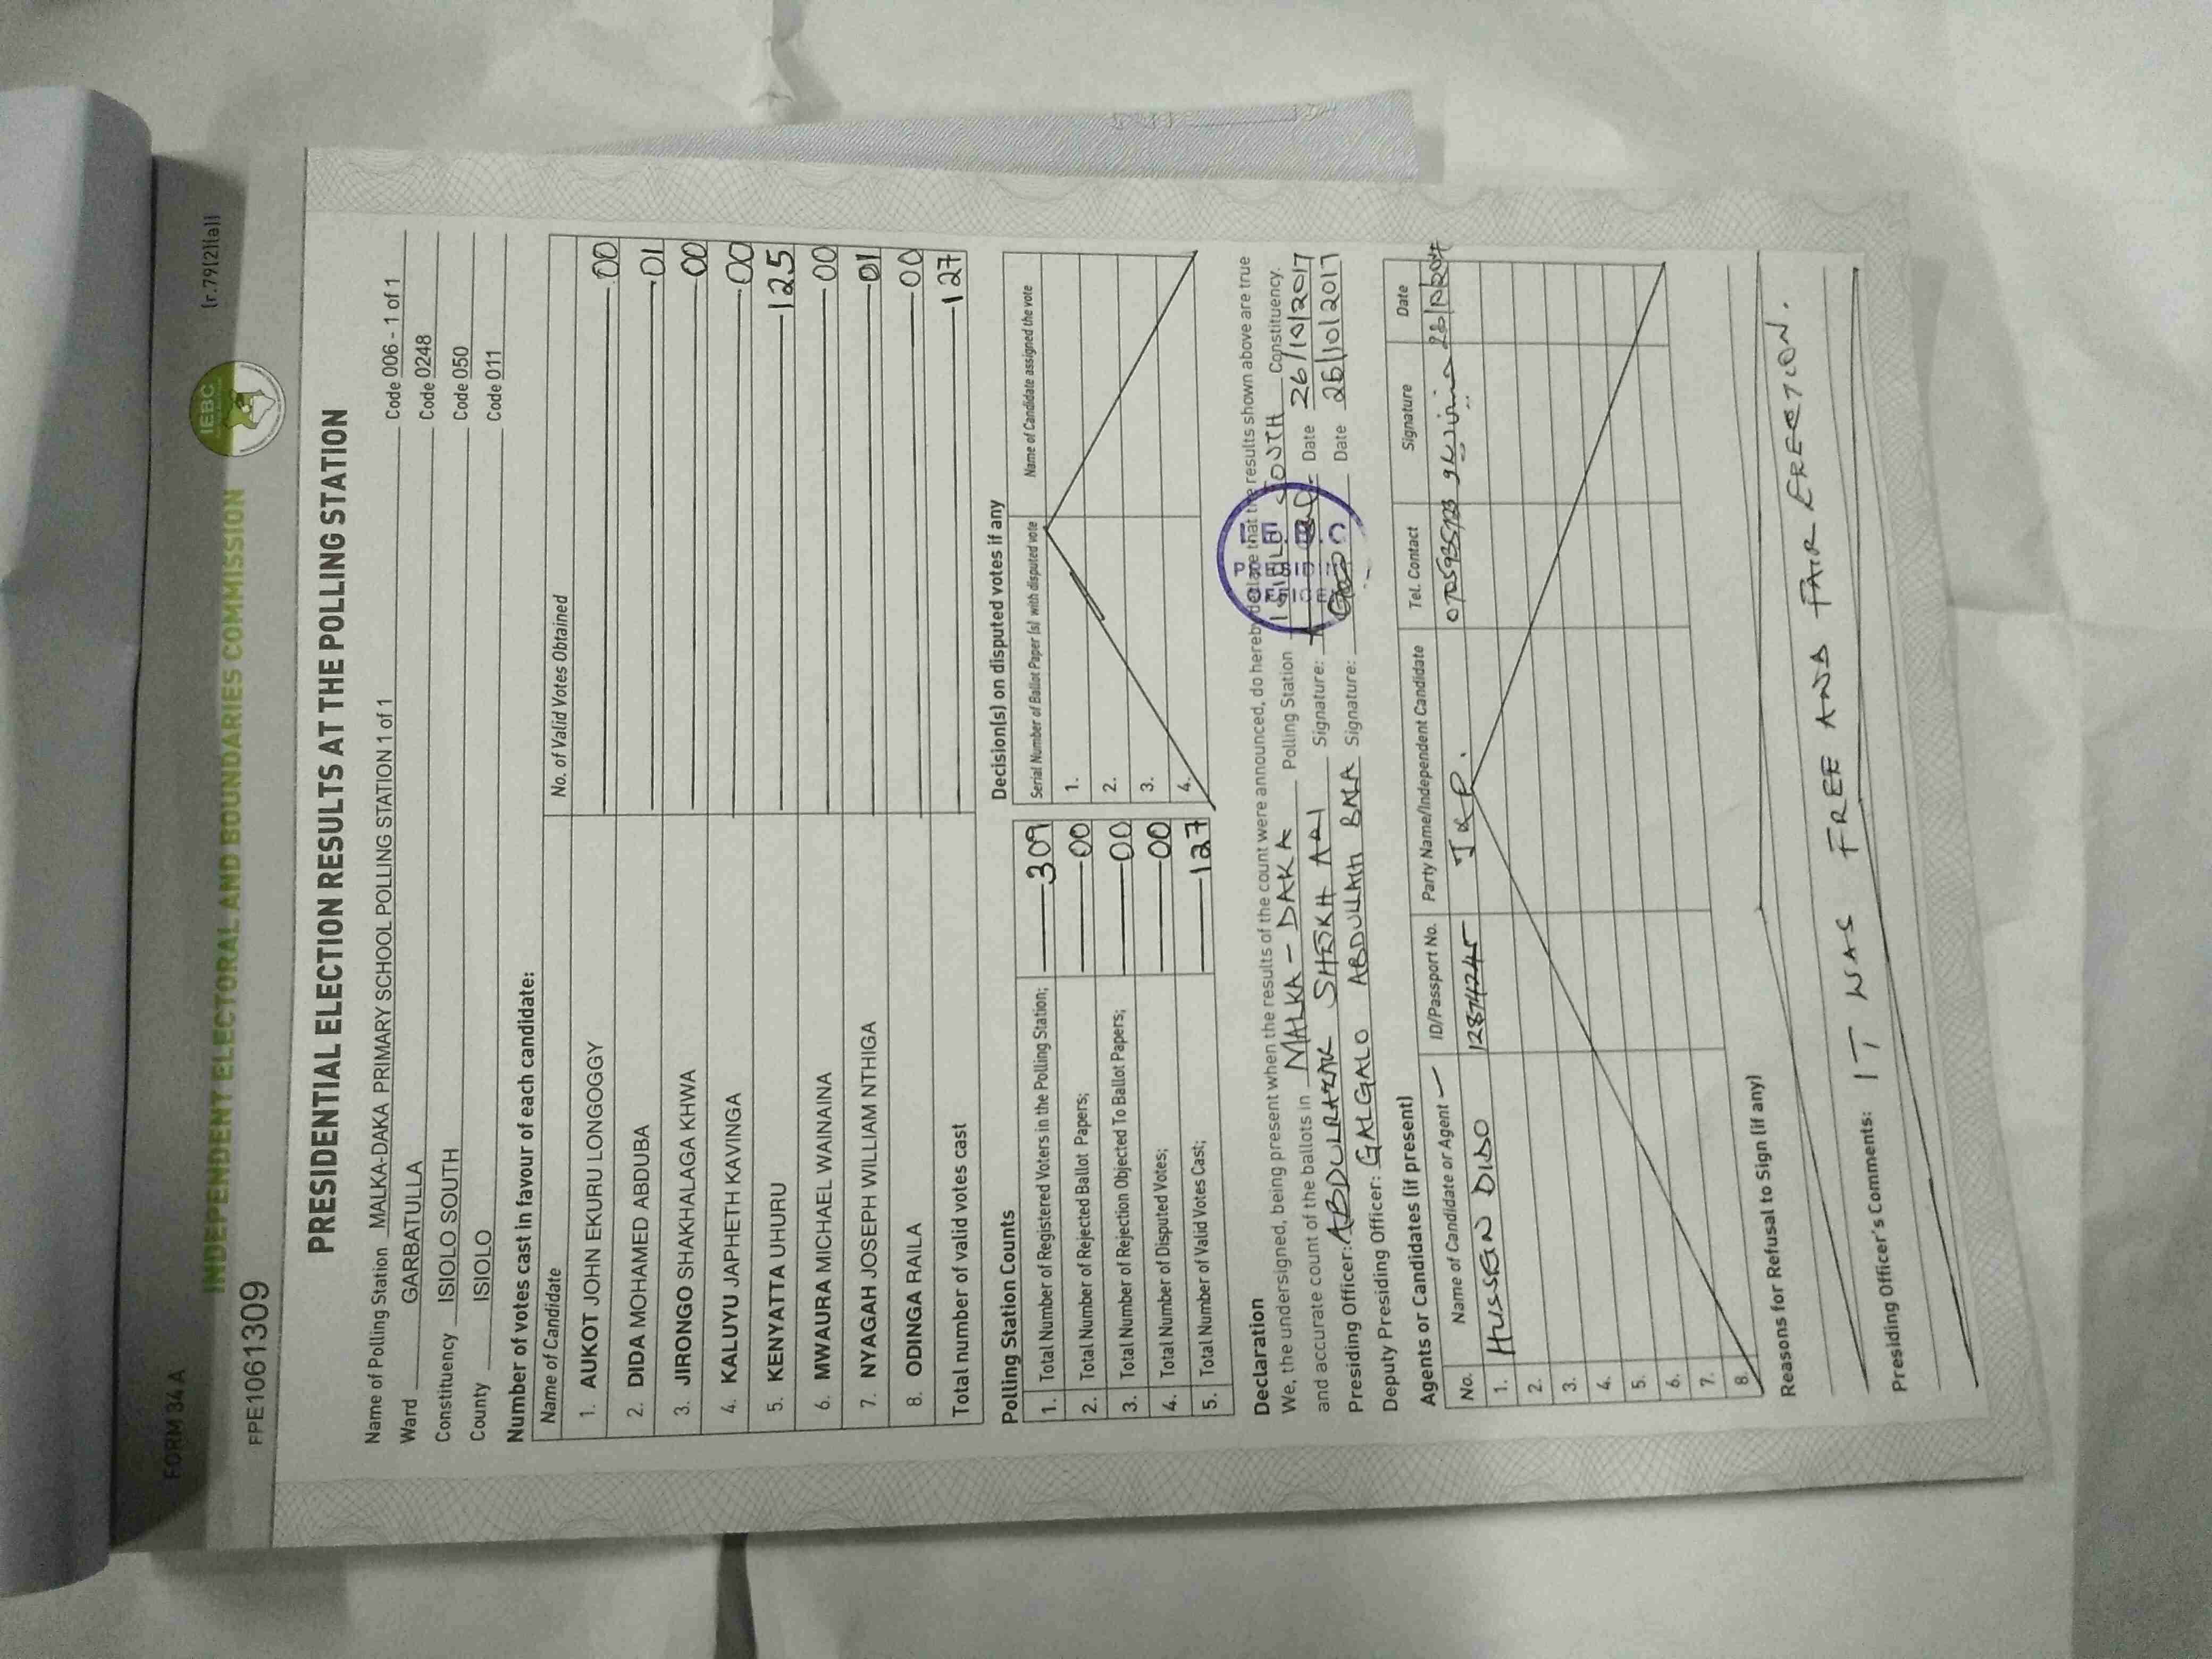 FORM 34A
(r.79(2)(a))
IEBC
INDEPENDENT ELECTORAL AND BOUNDARIES COMMISSION
PPE1061309
PRESIDENTIAL ELECTION RESULTS AT THE POLLING STATION
Name of Polling Station MALKA-DAKA PRIMARY SCHOOL POLLING STATION 1 of 1 Code 006 - 1 of 1
Ward GARBATULLA Code 0248
Constituency ISIOLO SOUTH Code 050
County ISIOLO Code 011
Number of votes cast in favour of each candidate:
Name of Candidate No. of Valid Votes Obtained
1. AUKOT JOHN EKURU LONGOGGY 00
2. DIDA MOHAMED ABDUBA 01
3. JIRONGO SHAKHALAGA KHWA 00
4. KALUYU JAPHETH KAVINGA 00
5. KENYATTA UHURU 125
6. MWAURA MICHAEL WAINAINA 00
7. NYAGAH JOSEPH WILLIAM NTHIGA 01
8. ODINGA RAILA 00
Total number of valid votes cast 127
Polling Station Counts
1. Total Number of Registered Voters in the Polling Station; 309
2. Total Number of Rejected Ballot Papers; 00
3. Total Number of Rejection Objected To Ballot Papers; 00
4. Total Number of Disputed Votes; 00
5. Total Number of Valid Votes Cast; 127
Decision(s) on disputed votes if any
Serial Number of Ballot Paper (s) with disputed vote Name of Candidate assigned the vote
1.
2.
3.
4.
Declaration
We, the undersigned, being present when the results of the count were announced, do hereby declare that the results shown above are true
and accurate count of the ballots in MALKA - DAKA Polling Station ISIOLO SOUTH Constituency.
Presiding Officer: ABDULRAZAK SHEIKH Signature: Date 26/10/2017
Deputy Presiding Officer: GALGALO ABDULLAHI BALA Signature: Date 26/10/2017
Agents or Candidates (if present)
No. Name of Candidate or Agent ID/Passport No. Party Name/Independent Candidate Tel. Contact Signature Date
1. HUSSEIN DIDO 12874245
2.
3.
4.
5.
6.
7.
8.
Reasons for Refusal to Sign (if any)
Presiding Officer's Comments: IT WAS FREE AND FAIR ERECTION.